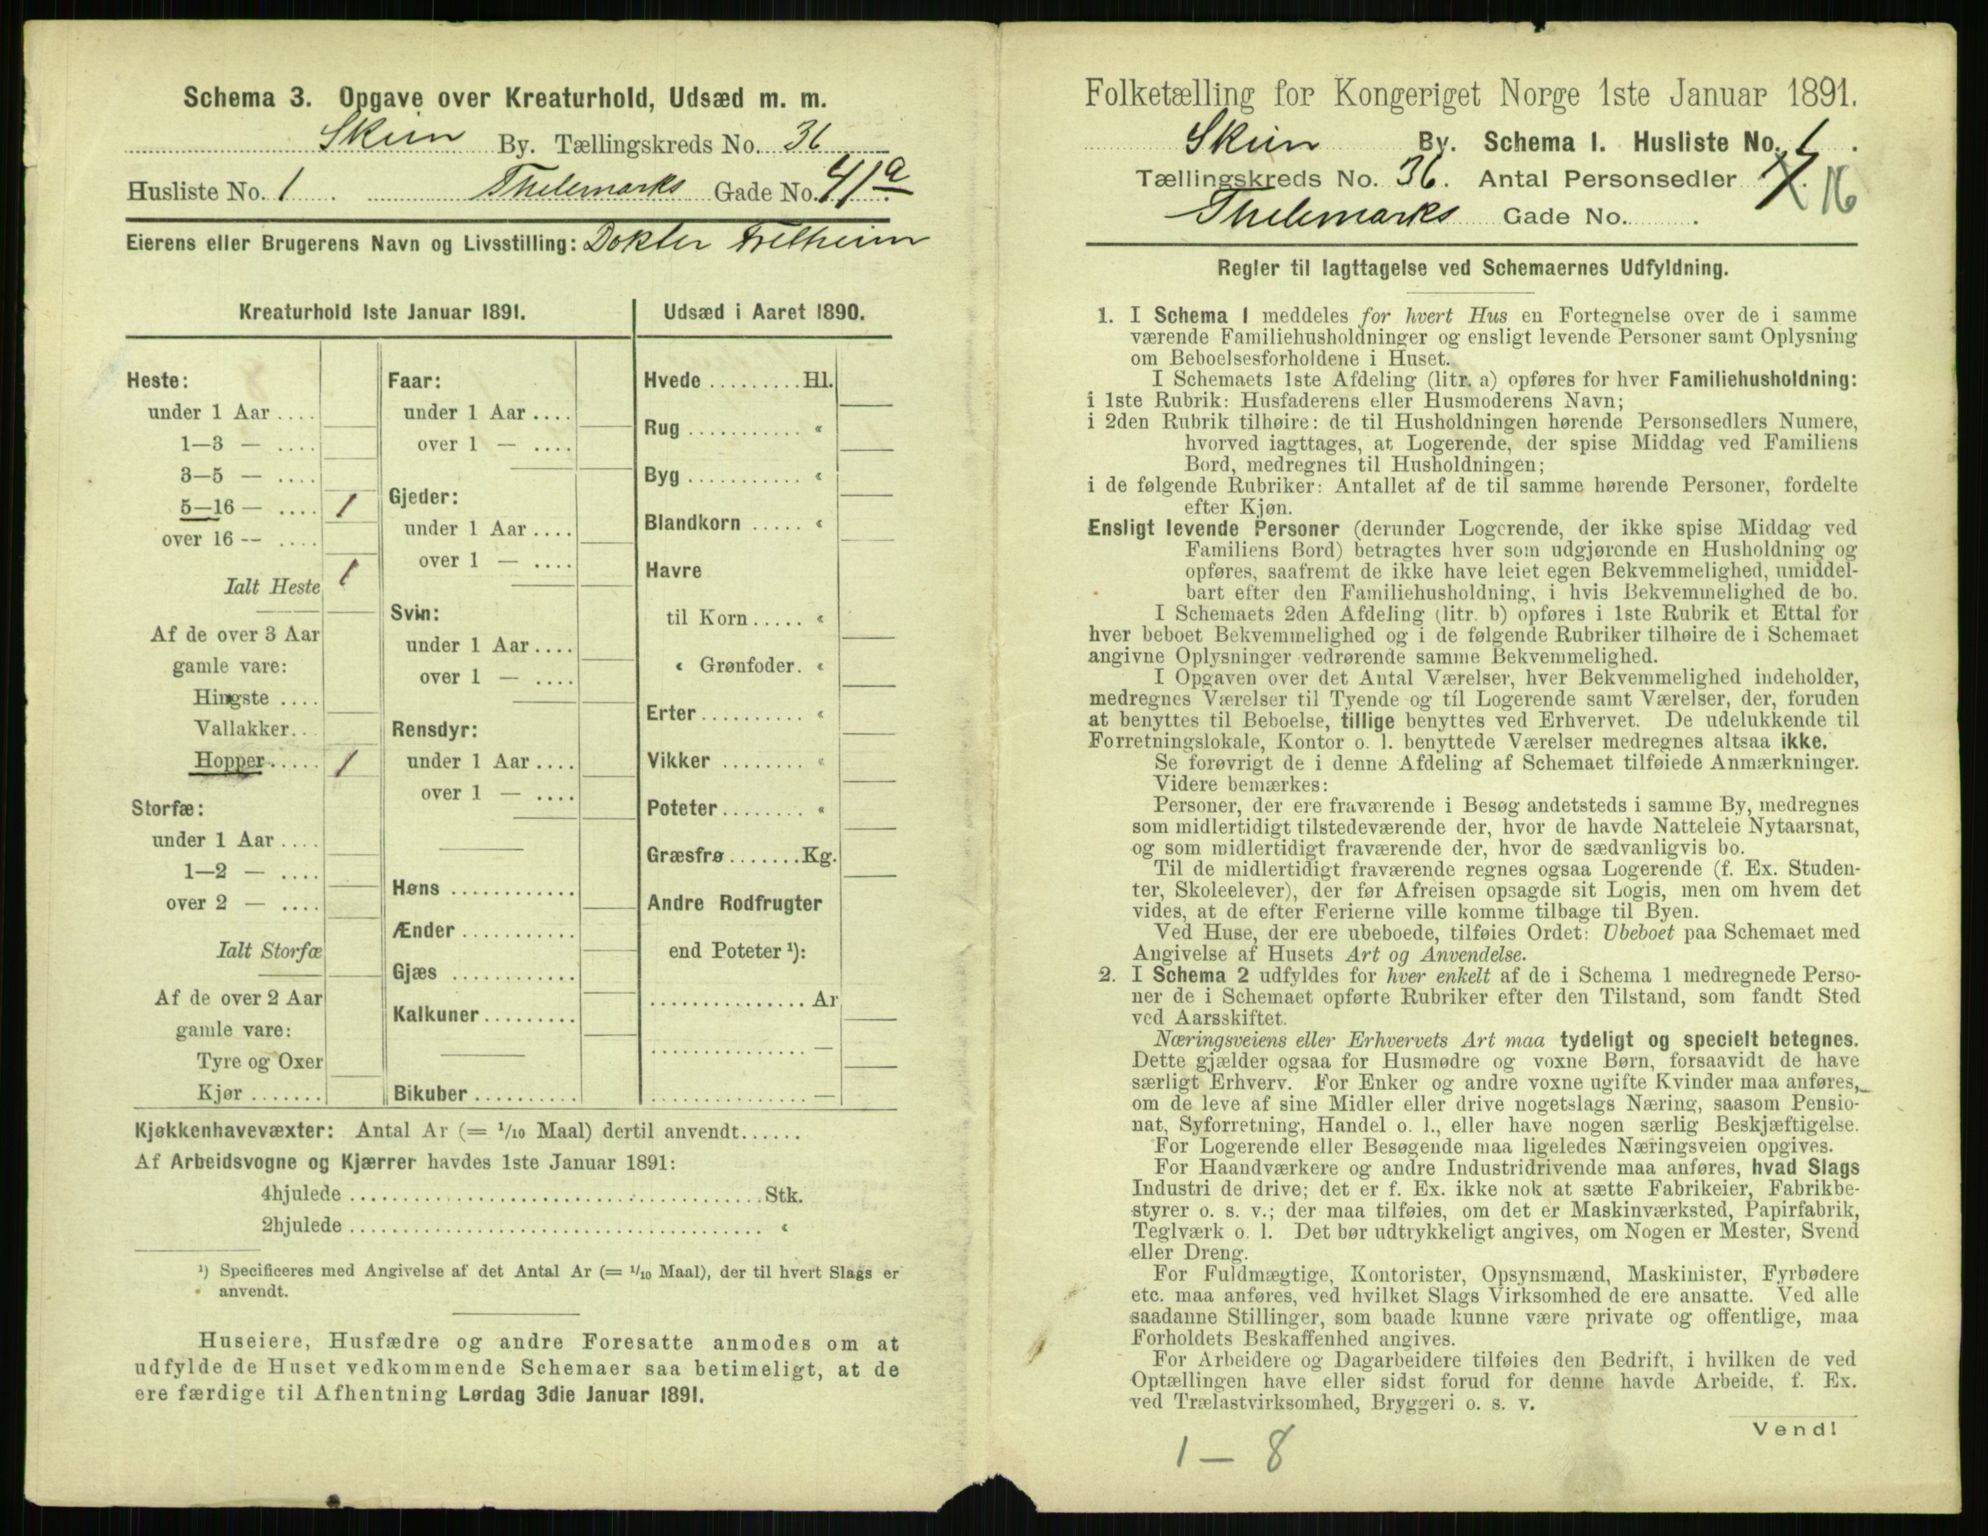 Schema 3. Opgave over Kreaturhold, Udsæd m. m.
Skien By. Tællingskreds No. 36
Husliste No. 1 Thelemarks Gade No. 41a
Eierens eller Brugerens Navn og Livsstilling: Dokter Fretheim
Kreaturhold 1ste Januar 1891.
Heste:
under 1 Aar ....
1—3 — ....
3—5 — ....
5—16 — .... 1
over 16 -- ....
Ialt Heste 1
Af de over 3 Aar
gamle vare:
Hingste ....
Vallakker..
Hopper..... 1
Storfæ:
under 1 Aar ....
1—2 — ....
over 2 — ....
Ialt Storfæ
Af de over 2 Aar
gamle vare:
Tyre og Oxer
Kjør .......
Faar:
under 1 Aar ....
over 1 — ....
Gjeder:
under 1 Aar ....
over 1 — ....
Svin:
under 1 Aar ....
over 1 — ....
Rensdyr:
under 1 Aar ....
over 1 — ....
Høns ............
Ænder ...........
Gjæs ............
Kalkuner.........
Bikuber ..........
Udsæd i Aaret 1890.
Hvede .........Hl.
Rug ........... «
Byg ........... «
Blandkorn ..... «
Havre
til Korn ..... «
« Grønfoder. «
Erter.......... «
Vikker ........ «
Poteter........ «
Græsfrø .......Kg.
Andre Rodfrugter
end Poteter ¹):
............... Ar
............... —
............... —
Kjøkkenhavevæxter: Antal Ar (= 1/10 Maal) dertil anvendt......
Af Arbeidsvogne og Kjærrer havdes 1ste Januar 1891:
4hjulede ........................................Stk.
2hjulede ........................................ «
¹) Specificeres med Angivelse af det Antal Ar (= 1/10 Maal), der til hvert Slags er
anvendt.
Huseiere, Husfædre og andre Foresatte anmodes om at
udfylde de Huset vedkommende Schemaer saa betimeligt, at de
ere færdige til Afhentning Lørdag 3die Januar 1891.
Folketælling for Kongeriget Norge 1ste Januar 1891.
Skien By. Schema I. Husliste No. 1.
Tællingskreds No. 36. Antal Personsedler 17. 16
Thelemarks Gade No. .
Regler til Iagttagelse ved Schemaernes Udfyldning.
1. I Schema 1 meddeles for hvert Hus en Fortegnelse over de i samme
værende Familiehusholdninger og ensligt levende Personer samt Oplysning
om Beboelsesforholdene i Huset.
I Schemaets 1ste Afdeling (litr. a) opføres for hver Familiehusholdning:
i 1ste Rubrik: Husfaderens eller Husmoderens Navn;
i 2den Rubrik tilhøire: de til Husholdningen hørende Personsedlers Numere,
hvorved iagttages, at Logerende, der spise Middag ved Familiens
Bord, medregnes til Husholdningen;
i de følgende Rubriker: Antallet af de til samme hørende Personer, fordelte
efter Kjøn.
Ensligt levende Personer (derunder Logerende, der ikke spise Middag ved
Familiens Bord) betragtes hver som udgjørende en Husholdning og
opføres, saafremt de ikke have leiet egen Bekvemmelighed, umiddel-
bart efter den Familiehusholdning, i hvis Bekvemmelighed de bo.
I Schemaets 2den Afdeling (litr. b) opføres i 1ste Rubrik et Ettal for
hver beboet Bekvemmelighed og i de følgende Rubriker tilhøire de i Schemaet
angivne Oplysninger vedrørende samme Bekvemmelighed.
I Opgaven over det Antal Værelser, hver Bekvemmelighed indeholder,
medregnes Værelser til Tyende og til Logerende samt Værelser, der, foruden
at benyttes til Beboelse, tillige benyttes ved Erhvervet. De udelukkende til
Forretningslokale, Kontor o. l. benyttede Værelser medregnes altsaa ikke.
Se forøvrigt de i denne Afdeling af Schemaet tilføiede Anmærkninger.
Videre bemærkes:
Personer, der ere fraværende i Besøg andetsteds i samme By, medregnes
som midlertidigt tilstedeværende der, hvor de havde Natteleie Nytaarsnat,
og som midlertidigt fraværende der, hvor de sædvanligvis bo.
Til de midlertidigt fraværende regnes ogsaa Logerende (f. Ex. Studen-
ter, Skoleelever), der før Afreisen opsagde sit Logis, men om hvem det
vides, at de efter Ferierne ville komme tilbage til Byen.
Ved Huse, der ere ubeboede, tilføies Ordet: Ubeboet paa Schemaet med
Angivelse af Husets Art og Anvendelse.
2. I Schema 2 udfyldes for hver enkelt af de i Schema 1 medregnede Perso-
ner de i Schemaet opførte Rubriker efter den Tilstand, som fandt Sted
ved Aarsskiftet.
Næringsveiens eller Erhvervets Art maa tydeligt og specielt betegnes.
Dette gjælder ogsaa for Husmødre og voxne Børn, forsaavidt de have
særligt Erhverv. For Enker og andre voxne ugifte Kvinder maa anføres,
om de leve af sine Midler eller drive nogetslags Næring, saasom Pensio-
nat, Syforretning, Handel o. l., eller have nogen særlig Beskjæftigelse.
For Logerende eller Besøgende maa ligeledes Næringsveien opgives.
For Haandværkere og andre Industridrivende maa anføres, hvad Slags
Industri de drive; det er f. Ex. ikke nok at sætte Fabrikeier, Fabrikbe-
styrer o. s. v.; der maa tilføies, om det er Maskinværksted, Papirfabrik,
Teglværk o. l. Det bør udtrykkeligt angives, om Nogen er Mester, Svend
eller Dreng.
For Fuldmægtige, Kontorister, Opsynsmænd, Maskinister, Fyrbødere
etc. maa anføres, ved hvilket Slags Virksomhed de ere ansatte. Ved alle
saadanne Stillinger, som baade kunne være private og offentlige, maa
Forholdets Beskaffenhed angives.
For Arbeidere og Dagarbeidere tilføies den Bedrift, i hvilken de ved
Optællingen have eller sidst forud for denne havde Arbeide, f. Ex.
ved Trælastvirksomhed, Bryggeri o. s. v.
Vend!
1 — 8